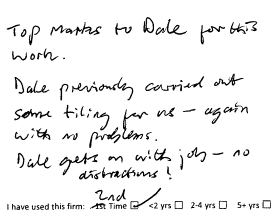 Top Marks to Dale for this
work.
Dale previously carried out
some tiling for us – again
with no problems.
Dale gets on with job – no
distractions!
2nd
I have used this firm: 1st Time <2 yrs 2-4 yrs 5+ yrs